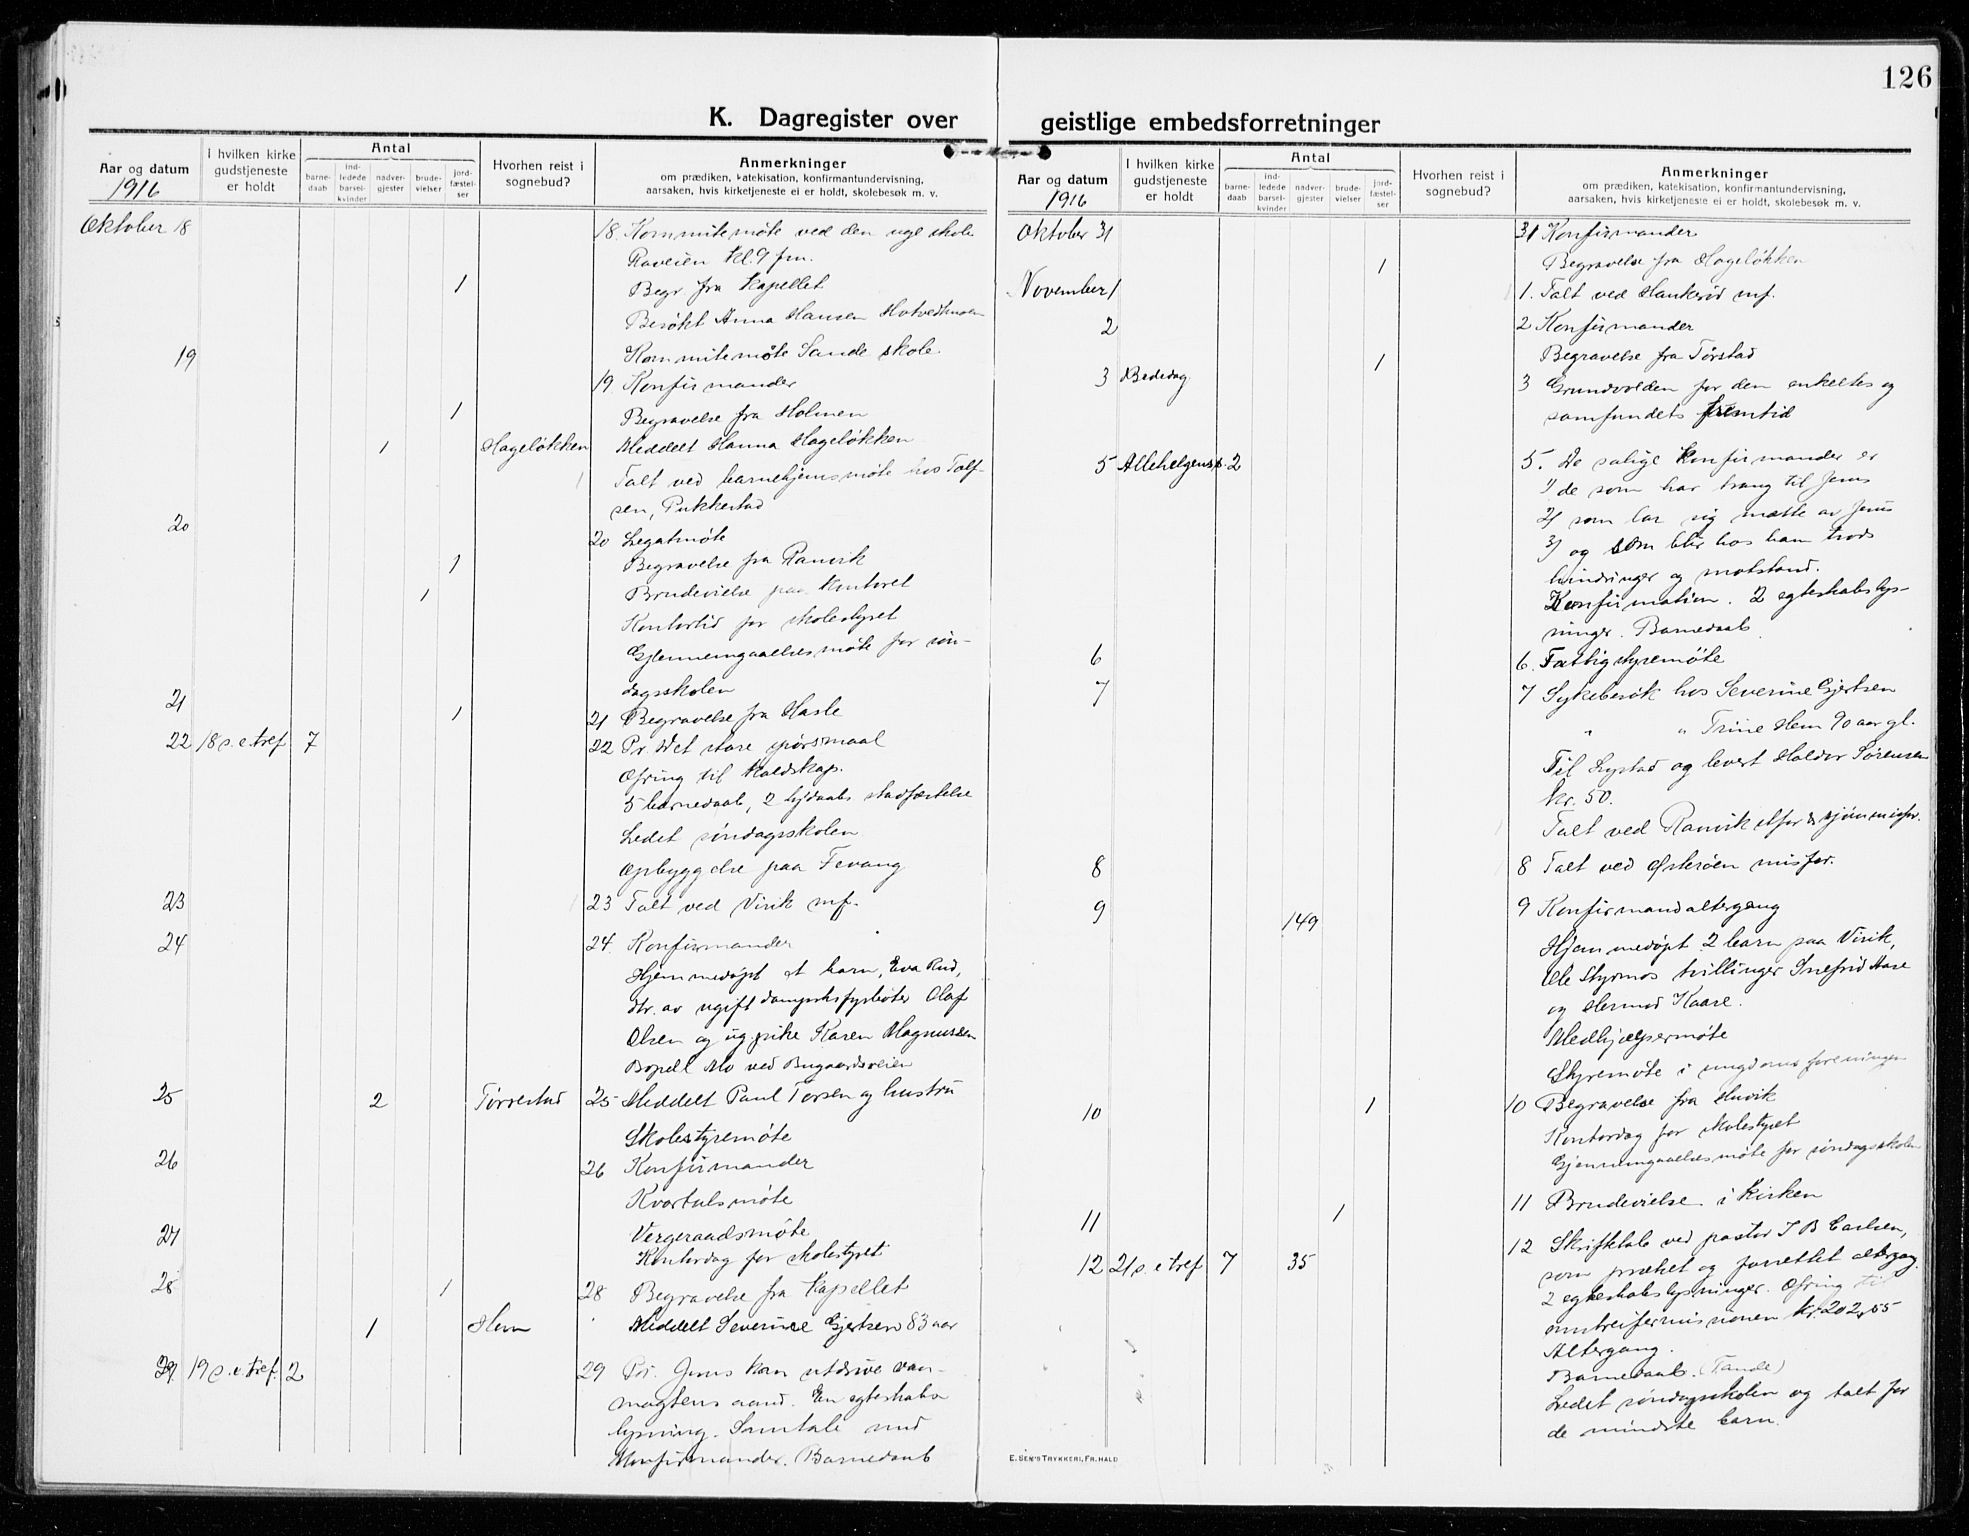 126
K. Dagregister over geistlige embedsforretninger
Aar og datum
1916
I hvilken kirke gudstjeneste er holdt
Antal
barne-daab
ind-ledede barsel-kvinder
nadver-gjester
brude-vielser
jord-fæstel-ser
Hvorhen reist i sognebud?
Anmerkninger
om prædiken, katekisation, konfirmantundervisning,
aarsaken, hvis kirketjeneste ei er holdt, skolebesøk m. v.
Oktober 18
18. Kommitemøte ved den nye skole
Raveien kl. 9 fm.
1 Begr. fra Kapellet
Besøkt Anna Hansen
Kommitemøte Sande skole.
19
19. Konfirmander
1 Begravelse fra Holmen
1 Hageløkken Meddelt Hanna Hageløkken
Talt ved barnehjemsmøte hos Tolf-
sen, Pukkestad
20
20 Legatmøte
1 Begravelse fra Ranvik
1 Brudevielse paa kontoret
Kontortid for skolestyret
Gjennemgaaelsesmøte for søn-
dagsskolen
21 1 21 Begravelse fra Hasle
22 18 s. e. tref. 7 22 Pr. Det store spørsmaal
Ofring til kaldskap.
5 barnedaab, 2 hjdaabs stadfæstelse
Ledet søndagsskolen
Opbyggelse paa Fevang
23 23 Talt ved Virik mf.
24 24. Konfirmander
Hjemmedøpt et barn, Eva Rud,
dtr. av ugift dampskfyrbøter Olaf
Olsen og ug. pike Karen Magnussen
Bopæl Mo ved Bugaardsveien
25 2 Tørrestad 25 Meddelt Paul Torsen og hustru
Skolestyremøte
26 26 Konfirmander
Kvartalsmøte
27 Vergeraadsmøte
Kontordag for skolestyret
28 1 28 Begravelse fra Kapellet
1 Hem Meddelt Severine Gjertsen 83 aar
29 19 s. e. tref. 2 29 Pr. Jesus kan utdrive van-
magtens aand. En egteskabs
lysning. Samtale med
Konfirmander. Barnedaab
Aar og datum
1916
I hvilken kirke gudstjeneste er holdt
Antal
barne-daab
ind-ledede barsel-kvinder
nadver-gjester
brude-vielser
jord-fæstel-ser
Hvorhen reist i sognebud?
Anmerkninger
om prædiken, katekisation, konfirmantundervisning,
aarsaken, hvis kirketjeneste ei er holdt, skolebesøk m. v.
Oktober 31 31 Konfirmander
1 Begravelse fra Hageløkken
November 1 1. Talt ved Haukerød mf.
2 2 Konfirmander
1 Begravelse fra Tørstad
3 Bededag 3 Grundvolden for den enkeltes og
samfundets fremtid
5 Allehelgensd. 2 5. De salige konfirmander er
1) de som har trang til Jesus
2) som lar sig mætte av Jesus
3) og som blir hos ham trods
hindringer og motstand.
Konfirmation. 2 egteskabslys-
ninger. Barnedaab.
6 6. Fattigstyremøte
7 7 Sykebesøk hos Severine Gjertsen
" " Trine Hem 90 aar gl.
Til Lystad og levert Haldor Sørensen
kr. 50.
Talt ved Ranvik
8 8 Talt ved Østerøen misfor.
9 149 9 Konfirmandaltergang
Hjemmedøpt 2 barn paa Virik,
Ole Styrmos tvillinger Snefrid Aase
og Hermod Kaare.
Medhjælpermøte
Styremøte i ungdomsforeningen
10 1 10 Begravelse fra Huvik
Kontordag for skolestyret
Gjennemgaaelsesmøte for søndagsskolen
11 1 11 Brudevielse i kirken
12 21 s. e. tref 7 35 12 Skriftetale ved pastor I B Carlsen,
som præket og forrettet altergang.
2 egteskabslysninger. Ofring til
omstreifermissionen kr. 202,55
Altergang.
Barnedaab. (Tande)
Ledet søndagsskolen og talt for
de mindste barn.
E. SEM'S TRYKKERI, FR.HALD